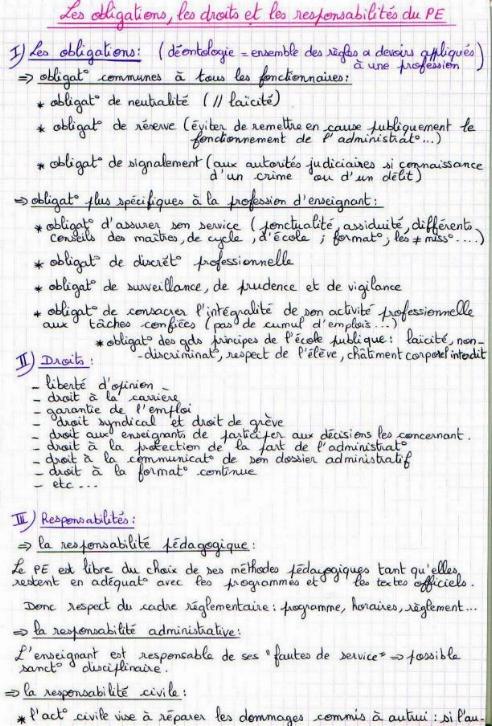 Les obligations, les droits et les responsabilités du PE
I) Les obligations : (déontologie = ensemble des règles & devoirs appliqués
à une profession)
⇒ obligat° communes à tous les fonctionnaires :
* obligat° de neutralité (// laïcité)
* obligat° de réserve (éviter de remettre en cause publiquement le
fonctionnement de l'administrat°...)
* obligat° de signalement (aux autorités judiciaires si connaissance
d'un crime ou d'un délit)
⇒ obligat° plus spécifiques à la profession d'enseignant :
* obligat° d'assurer son service (ponctualité, assiduité, différents
conseils des maîtres, de cycle, d'école ; format°, les ≠ miss°....)
* obligat° de discrét° professionnelle
* obligat° de surveillance, de prudence et de vigilance
* obligat° de consacrer l'intégralité de son activité professionnelle
aux tâches confiées (pas de cumul d'emplois...)
* obligat° des gds principes de l'école publique : laïcité, non-
-discriminat°, respect de l'élève, châtiment corporel interdit
II) Droits :
- liberté d'opinion -
- droit à la carrière
- garantie de l'emploi
- droit syndical et droit de grève
- droit aux enseignants de participer aux décisions les concernant.
- droit à la protection de la part de l'administrat°
- droit à la communicat° de son dossier administratif
- droit à la format° continue
- etc...
III) Responsabilités :
⇒ la responsabilité pédagogique :
Le PE est libre du choix de ses méthodes pédagogiques tant qu'elles
restent en adéquat° avec les programmes et les textes officiels.
Donc respect du cadre réglementaire : programme, horaires, règlement...
⇒ la responsabilité administrative :
L'enseignant est responsable de ses "fautes de service" ⇒ possible
sanct° disciplinaire.
⇒ la responsabilité civile :
* l'act° civile vise à réparer les dommages commis à autrui : si l'au-